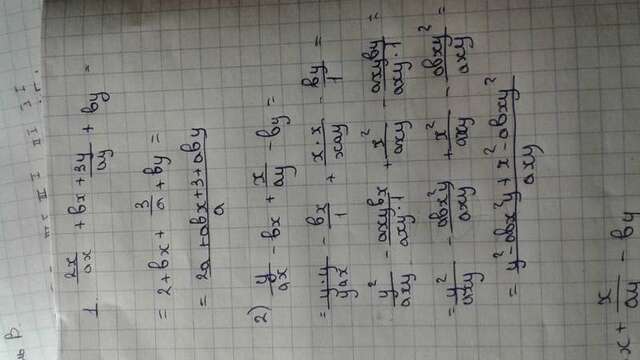 В
1. 2x/ax + вx + 3y/ay + вy =
= 2 + вx + 3/a + вy =
= (2a + aвx + 3 + aвy)/a
2) y/ax - вx + x/ay - вy =
= y·y/yax - вx/1 + x·x/xay - вy/1 =
y²/axy - axyвx/axy·1 + x²/axy - axyвy/axy·1 =
= y²/axy - aвx²y/axy + x²/axy - aвxy²/axy =
= (y² - aвx²y + x² - aвxy²)/axy
x + x/ay - вy